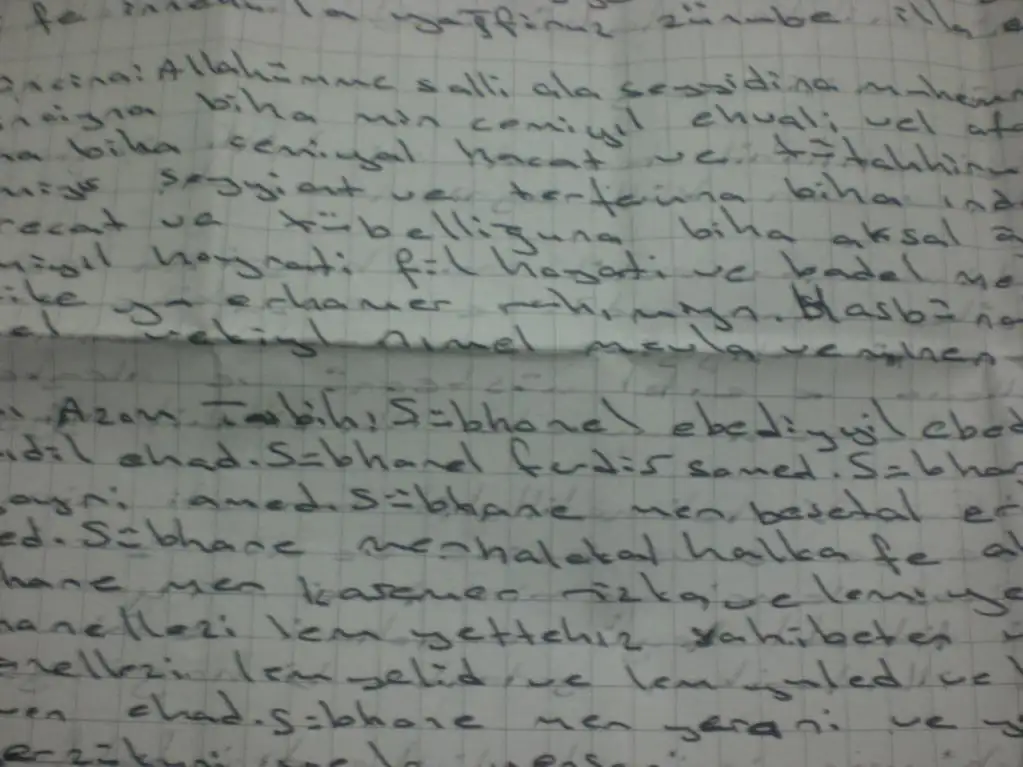 fe innehu la yağfiruz zünube illa e
Allahümme salli ala seyyidina muhem
biha min cemiyıl ehvali vel afa
na biha cemiyal hacat ve tütahhiru
seyyiat ve terfeuna biha ind
recat ve tübelliğuna biha aksal
hayrati fil hayati ve badel me
ike ya erhamer rahımıyn. Hasbüna
el vekiyl nimel mevla ve nimen
Azam Tesbih: Sübhanel ebediyyil ebed
idil ehad. Sübhanel ferdis samed. Sübhan
gayri amed. Sübhane men besetal er
ed. Sübhane men halekal halka fe a
hane men kasemer rizka ve lem ye
hanellezi lem yettehiz sahibeten
anellezi lem yelid ve lem yuled ve l
ven ehad. Sübhane men yerani ve y